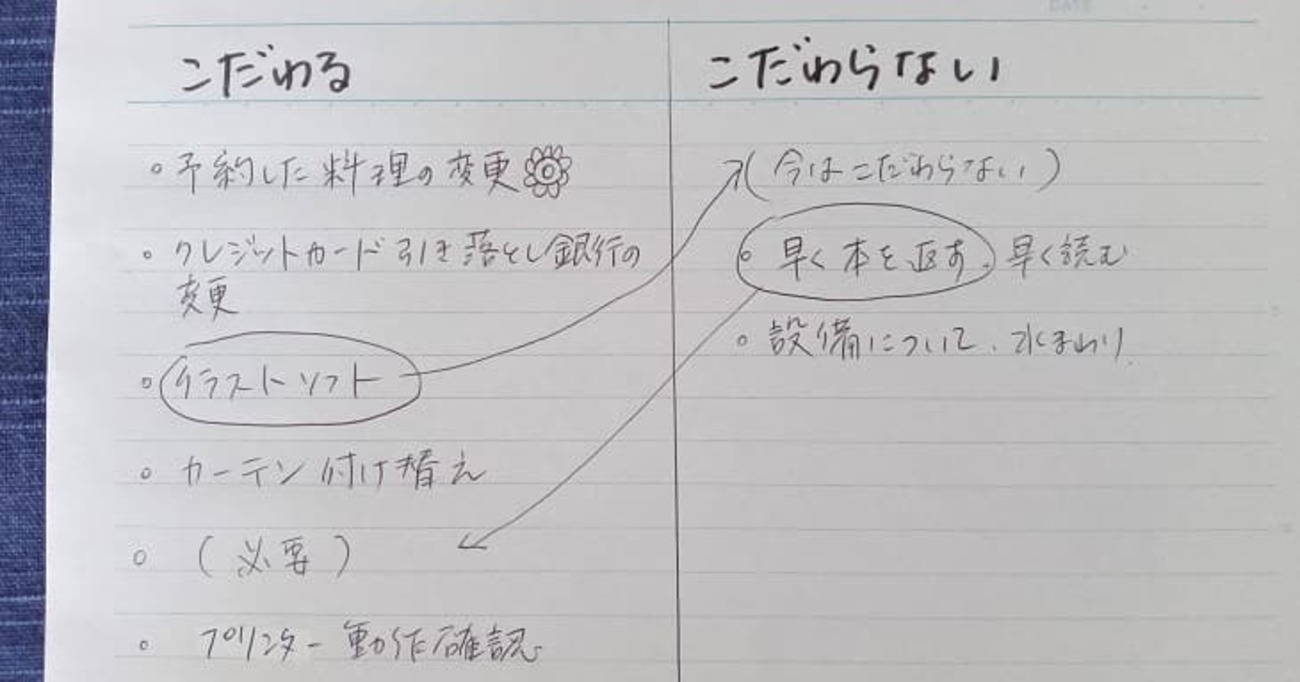 こだわる
◦予約した料理の変更
◦クレジットカード引き落とし銀行の
変更
◦イラストソフト
◦カーテン付け替え
◦(必要)
◦プリンター動作確認
DATE
こだわらない
(今はこだわらない)
◦早く本を返す、早く読む
◦設備について、水まわり